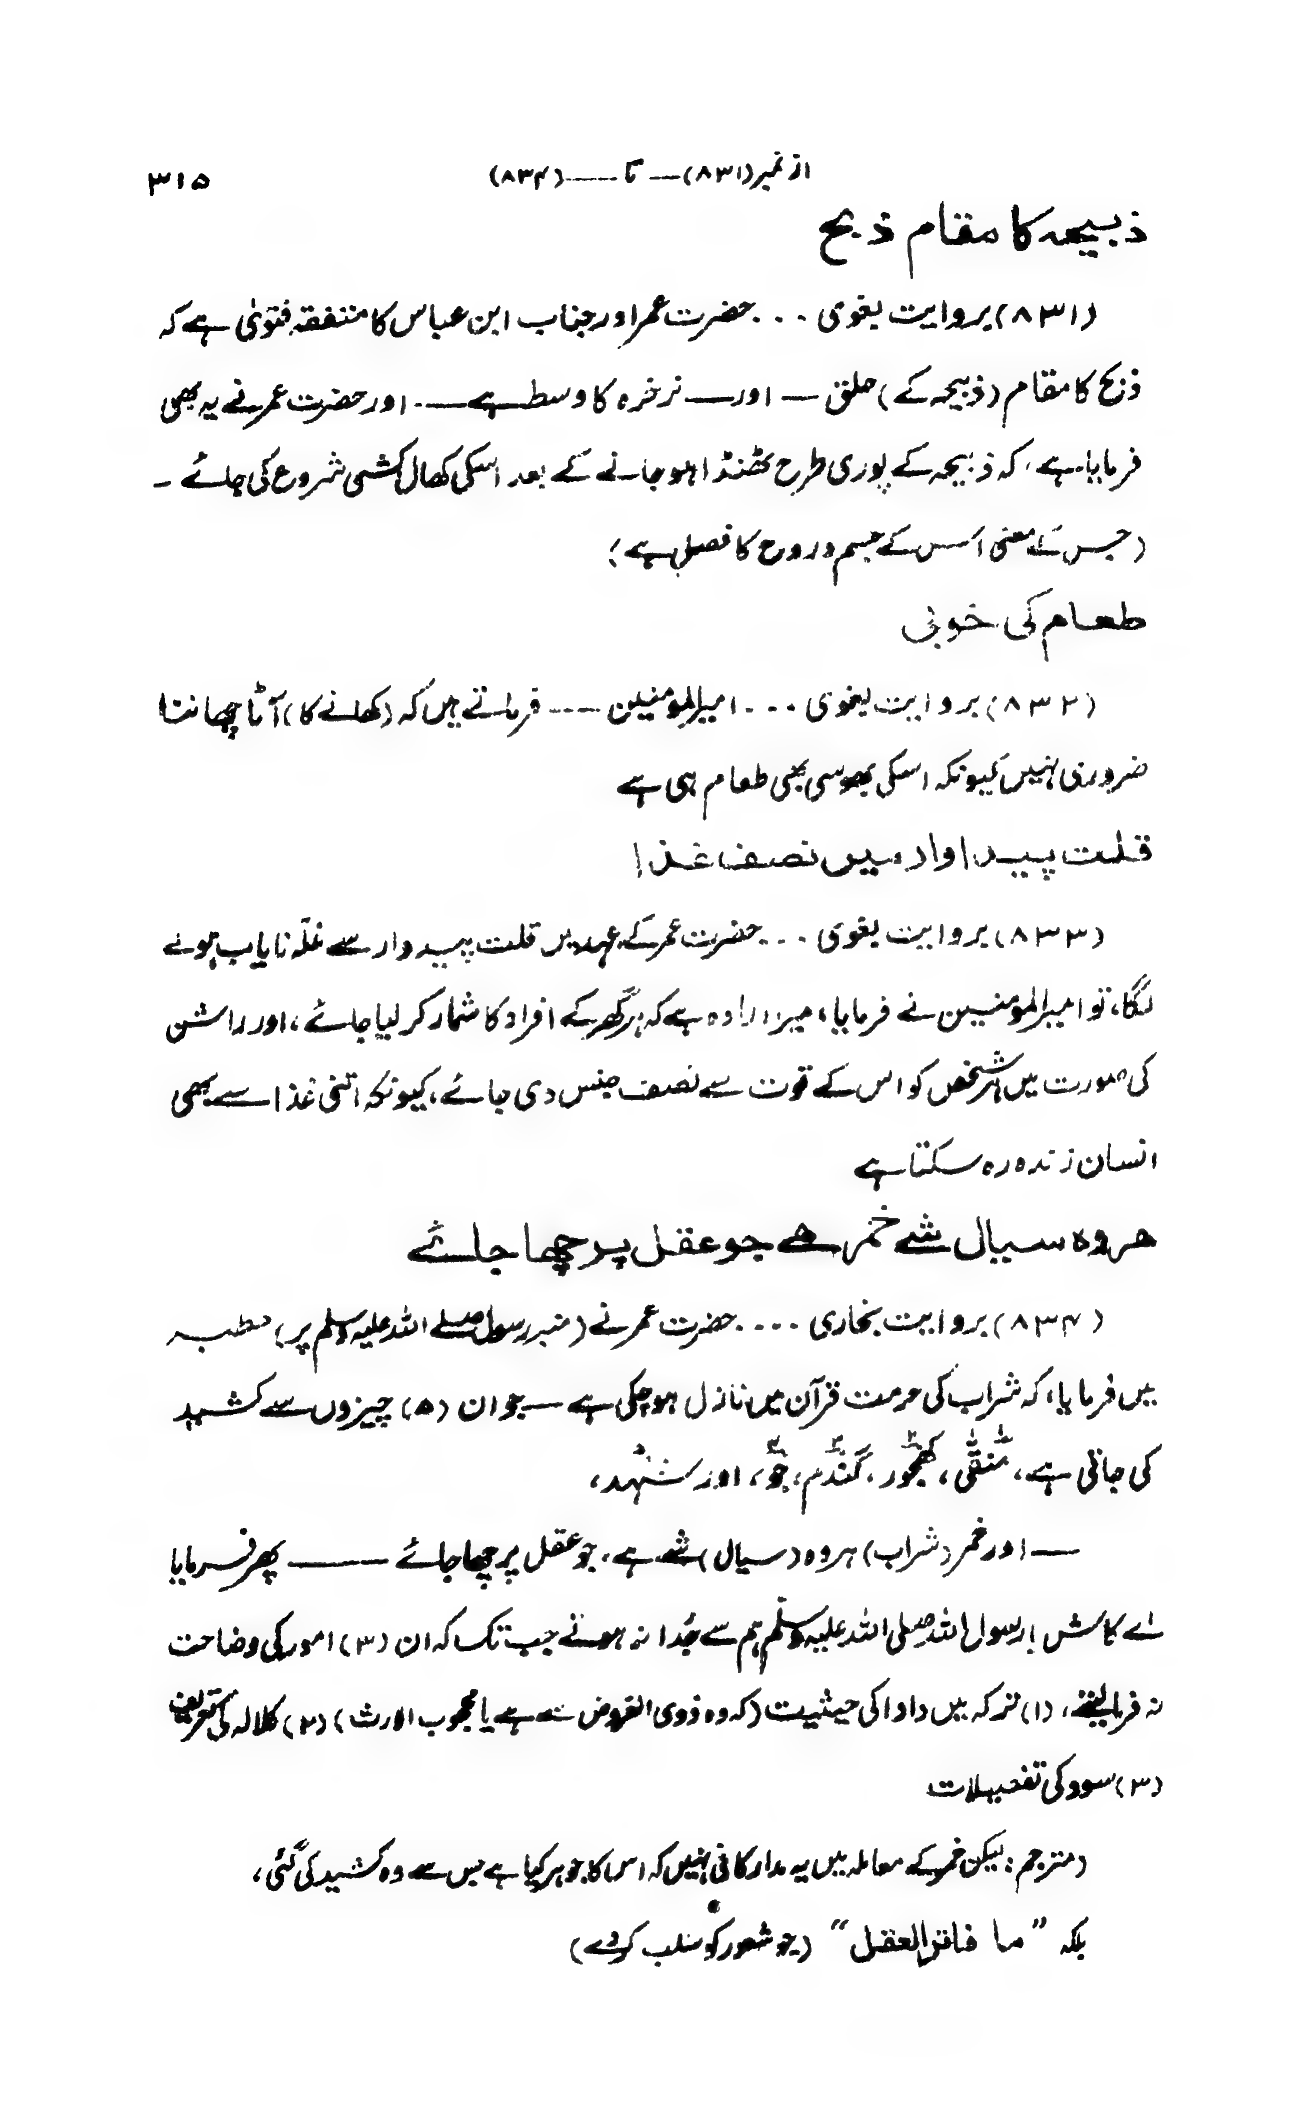 از نمبر (۸۳۱) — تا — (۸۳۴) ۳۱۵
ذبیحہ کا مقام ذبح
(۸۳۱) بروایت بغوی ... حضرت عمر اور جناب ابن عباس کا متفقہ فتویٰ ہے کہ
ذبح کا مقام (ذبیحہ کے) حلق — اور — نرخرہ کا وسط ہے —. اور حضرت عمر نے یہ بھی
فرمایا ہے، کہ ذبیحہ کے پوری طرح ٹھنڈا ہو جانے کے بعد اسکی کھال کشی شروع کی جائے -
(جس کے معنی اس کے جسم و روح کا فصل ہے)
طعام کی خوبی
(۸۳۲) بروایت بغوی ... امیرالمومنین ---- فرماتے ہیں کہ (کھانے کا) آٹا چھاننا
ضروری نہیں کیونکہ اسکی بھوسی بھی طعام ہی ہے
قلت پیداوار میں نصف غذا
(۸۳۳) بروایت بغوی ... حضرت عمر کے عہد میں قلت پیداوار سے غلّہ نایاب ہونے
لگا، تو امیرالمومنین نے فرمایا، میرا ارادہ ہے کہ ہر گھر کے افراد کا شمار کر لیا جائے، اور راشن
کی صورت میں ہر شخص کو اس کے قوت سے نصف جنس دی جائے، کیونکہ اتنی غذا سے بھی
انسان زندہ رہ سکتا ہے
ہر وہ سیال شے خمر ہے جو عقل پر چھا جائے
(۸۳۴) بروایت بخاری .... حضرت عمر نے (منبر رسول صلے اللہ علیہ وسلم پر) خطبہ
میں فرمایا، کہ شراب کی حرمت قرآن میں نازل ہو چکی ہے — جو ان (۵) چیزوں سے کشید
کی جاتی ہے، منقّٰی، کھجور، گندم، جَو، اور شہد،
— اور خمر (شراب) ہر وہ (سیال) شے ہے، جو عقل پر چھا جائے —— پھر فرمایا
اے کاش! رسول اللہ صلی اللہ علیہ وسلم ہم سے جُدا نہ ہوتے جب تک کہ ان (۳) امور کی وضاحت
نہ فرما لیتے، (۱) ترکہ میں دادا کی حیثیت (کہ وہ ذوی الفروض سے ہے یا محجوب الارث) (۲) کلالہ کی تعریف
(۳) سود کی تفصیلات
(مترجم: لیکن خمر کے معاملہ میں یہ مدار کافی نہیں کہ اس کا جوہر کیا ہے جس سے وہ کشید کی گئی،
بلکہ "ما خامر العقل" (جو شعور کو سلب کر دے)